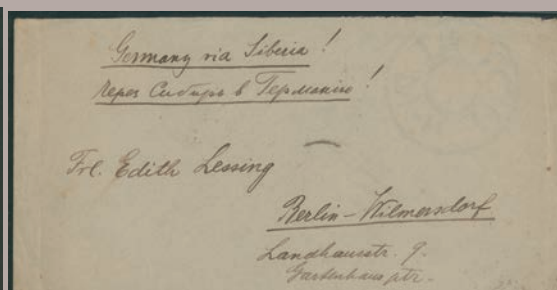 Germany via Siberia!
Через Сибирь в Германию!
Frl. Edith Lessing
Berlin-Wilmersdorf
Landhausstr. 9.
Gartenhaus ptr.